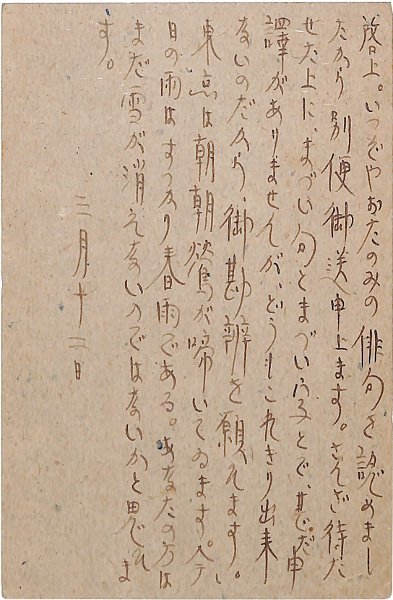 啓上。いつぞやおたのみの俳句を認めまし
たから別便御送申上ます。さんざ待た
せた上に、まづい句とまづい字とで、甚だ申
譯がありませんが、どうもこれきり出来
ないのだから、御勘辨を願へます。
東京は朝朝鶯が啼いてゐます。今
日の雨はすつかり春雨である。あなたの方は
まだ雪が消えないのではないかと思はれま
す。
三月十二日